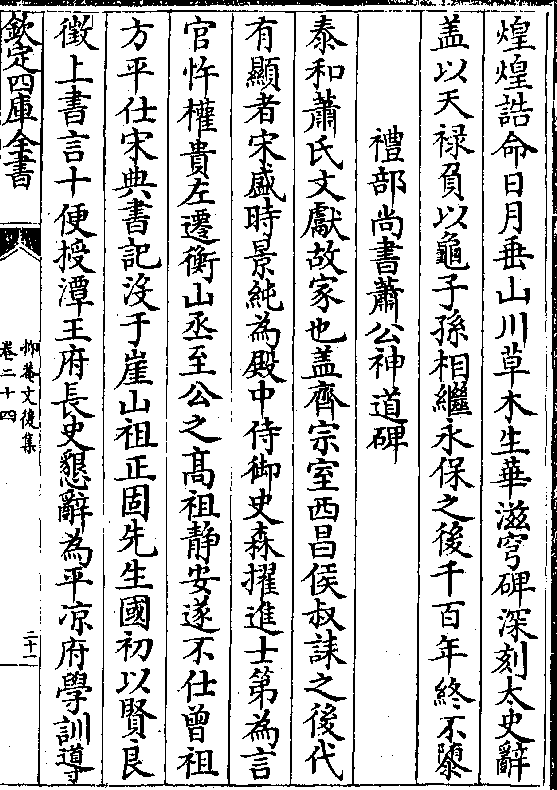 煌煌誥命日月垂山川草木生華滋穹碑深刻太史辭
盖以天禄負以龜子孫相繼永保之後千百年終不隳
禮部尚書蕭公神道碑
泰和蕭氏文獻故家也盖齊宗室西昌侯叔誄之後代
有顯者宋盛時景純為殿中侍御史森擢進士第為言
官忤權貴左遷衡山丞至公之髙祖静安遂不仕曾祖
方平仕宋典書記没于崖山祖正固先生國初以賢良
徵上書言十便授潭王府長史懇辭為平凉府學訓導
欽定四庫全書
抑菴文後集
卷二十四
二十二